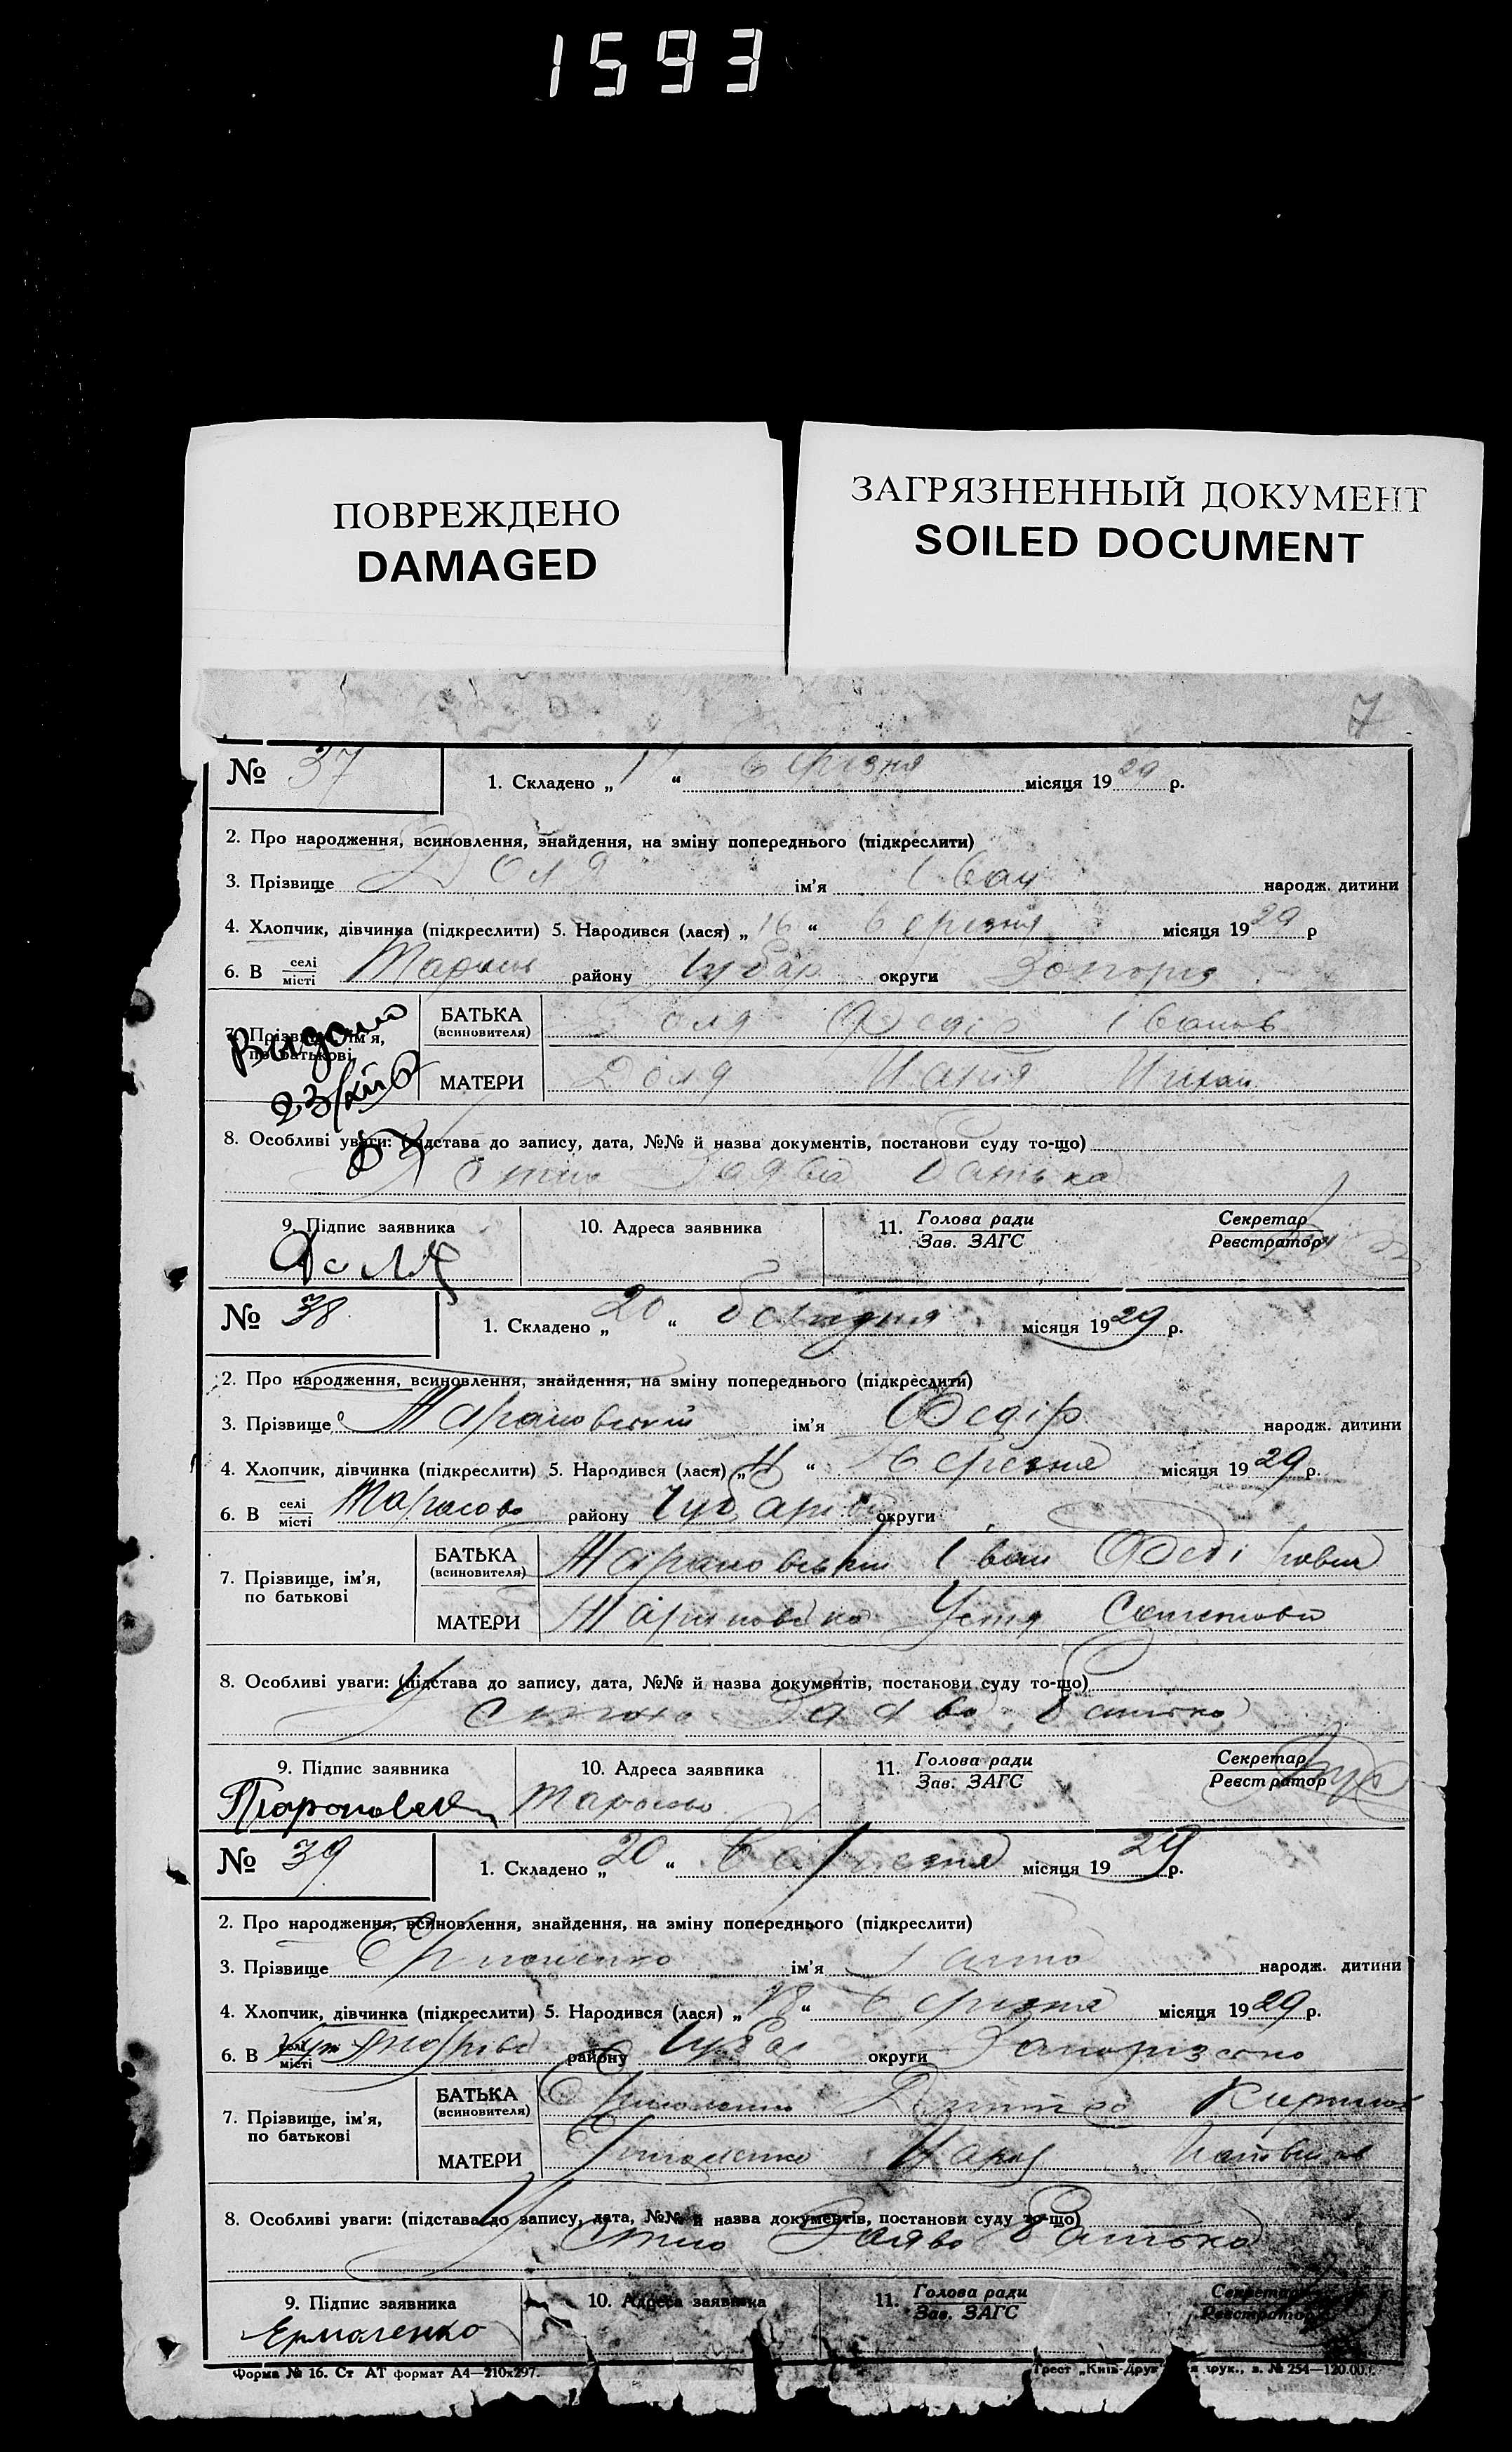 1593
ПОВРЕЖДЕНО
DAMAGED
ЗАГРЯЗНЕННЫЙ ДОКУМЕНТ
SOILED DOCUMENT
7
№ 37
1. Складено „ “ березня місяця 1929 р.
2. Про народження, всиновлення, знайдення, на зміну попереднього (підкреслити)
3. Прізвище Доля ім'я Іван народж. дитини
4. Хлопчик, дівчинка (підкреслити) 5. Народився (лася) „16“ березня місяця 1929 р
6. В селі/місті Тарасов району Чубар округи Запоріз
7. Прізвище, ім'я, по батькові
Видано
БАТЬКА (всиновителя) Доля Федір Іванов
МАТЕРИ Доля
8. Особливі уваги: (підстава до запису, дата, №№ й назва документів, постанови суду то-що)
Устно Заява батька
9. Підпис заявника
10. Адреса заявника
11. Голова ради/Зав. ЗАГС
Секретар/Реєстратор
Доля
№ 38
1. Складено „20“ місяця 1929 р.
2. Про народження, всиновлення, знайдення, на зміну попереднього (підкреслити)
3. Прізвище ім'я Федір народж. дитини
4. Хлопчик, дівчинка (підкреслити) 5. Народився (лася) „11“ березня місяця 1929 р.
6. В селі/місті Тарасовс району Чубарів округи
7. Прізвище, ім'я, по батькові
БАТЬКА (всиновителя) Іван Федірович
МАТЕРИ Устя
8. Особливі уваги: (підстава до запису, дата, №№ й назва документів, постанови суду то-що)
Устно Заява батька
9. Підпис заявника
10. Адреса заявника
11. Голова ради/Зав. ЗАГС
Секретар/Реєстратор
Тарасово
№ 39
1. Складено „20“ березня місяця 1929 р.
2. Про народження, всиновлення, знайдення, на зміну попереднього (підкреслити)
3. Прізвище ім'я Ганна народж. дитини
4. Хлопчик, дівчинка (підкреслити) 5. Народився (лася) „18“ березня місяця 1929 р.
6. В селі/місті району Чубар округи Запорізсько
7. Прізвище, ім'я, по батькові
БАТЬКА (всиновителя) Дмитро Кирилов
МАТЕРИ
8. Особливі уваги: (підстава до запису, дата, №№ й назва документів, постанови суду то-що)
Устно Заява батька
9. Підпис заявника
10. Адреса заявника
11. Голова ради/Зав. ЗАГС
Секретар/Реєстратор
Ермаченко
Форма № 16. Ст АТ формат А4—210х297.
Трест „Київ-Друк" я друк., з. № 254—120.00